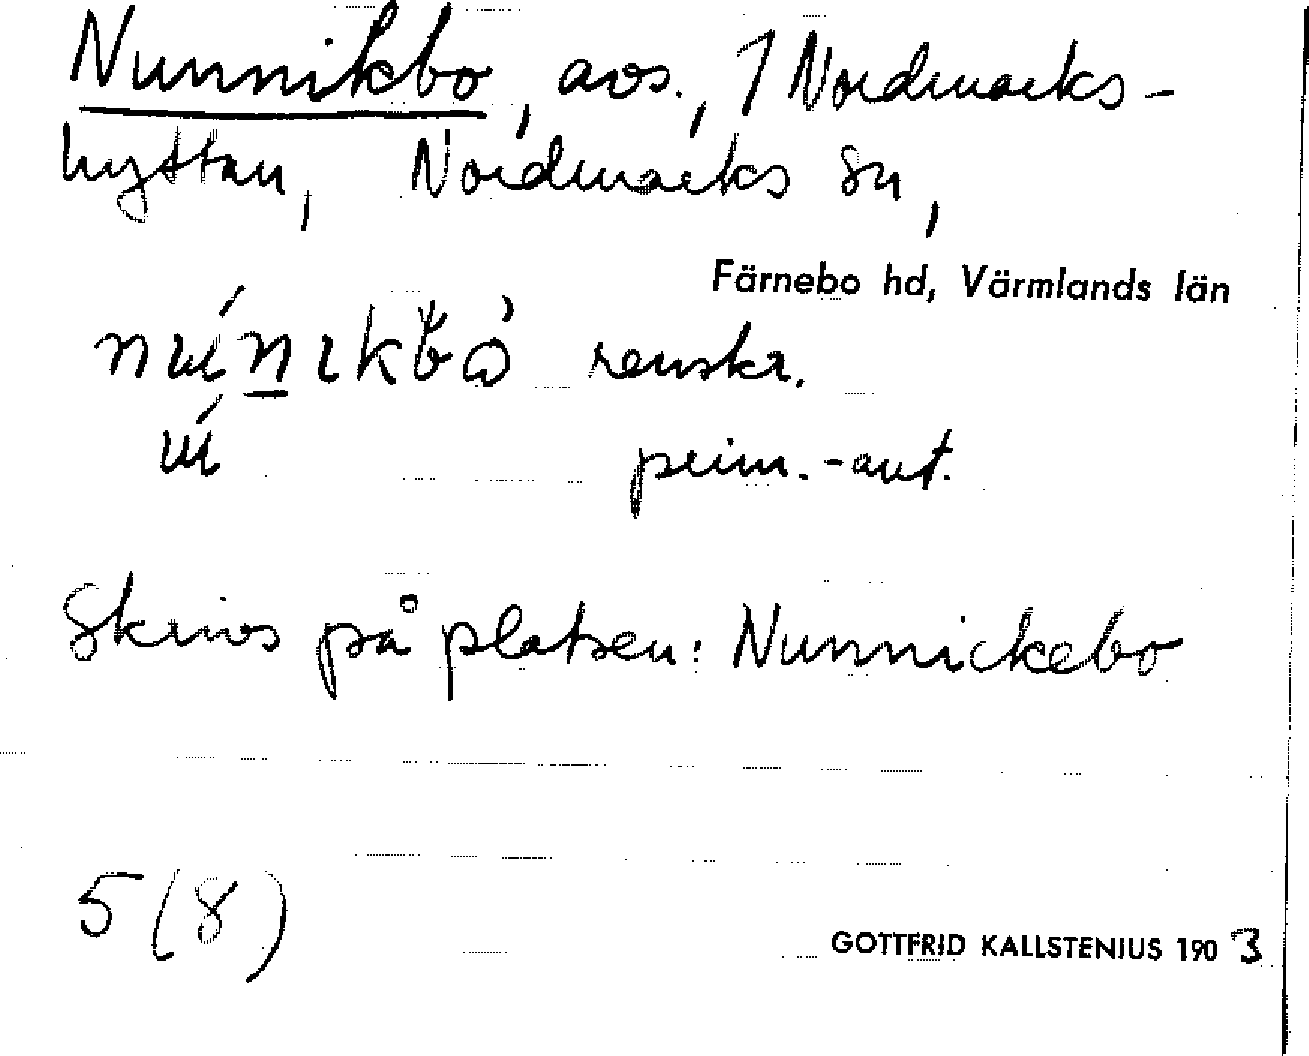 Nunnikbo, avs., 1 Nordmarks-
hyttan, Nordmarks sn,
Färnebo hd, Värmlands län
renskr.
prim.-ant.
Skrivs på platsen: Nunnickebo
5 (8)
GOTTFRID KALLSTENIUS 1903